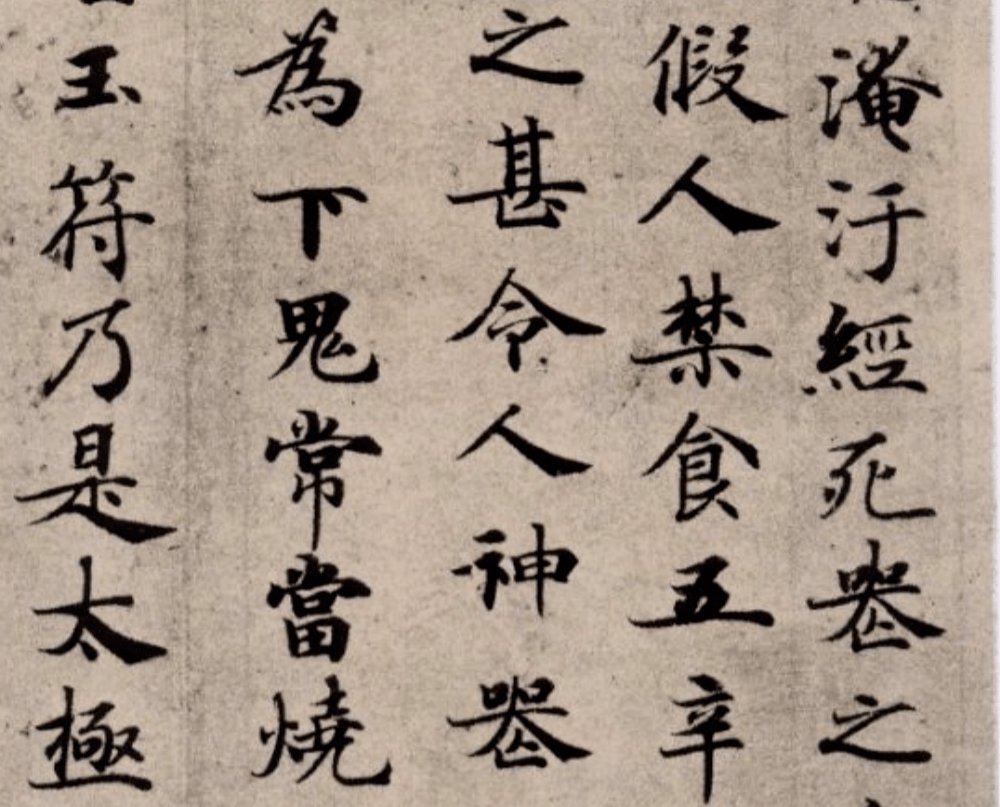 淹汙經死喪之
假人禁食五辛
之甚令人神喪
為下鬼常當燒
玉符乃是太極